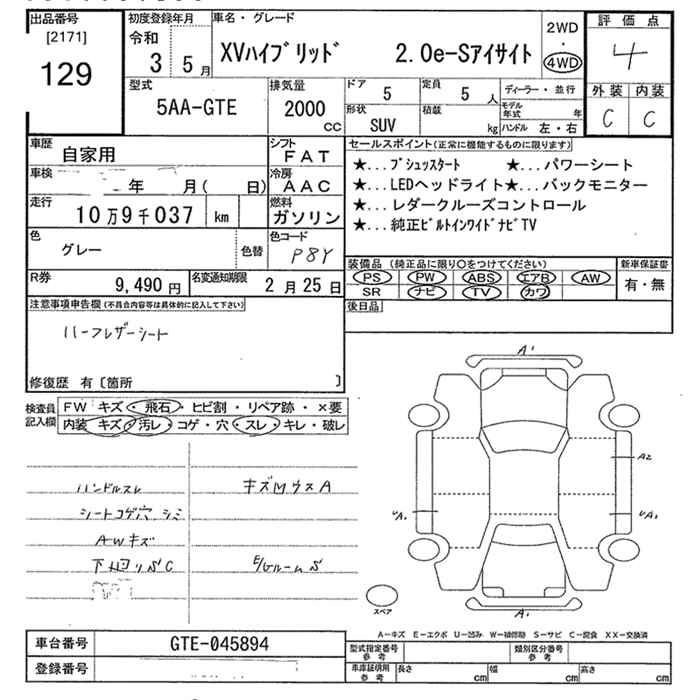 出品番号
[2171]
129
初度登録年月
令和
3 5月
車名・グレード
XVハイブリッド 2.0e-Sアイサイト
2WD
・
4WD
評価点
4
外装 内装
C C
型式
5AA-GTE
排気量
2000
CC
ドア 5
形状
SUV
定員 5人
積載 kg
ディーラー・並行
モデル
年式 年
ハンドル 左・右
車歴
自家用
シフト
FAT
車検
年 月( 日)
冷房
AAC
走行
10万9千037 km
燃料
ガソリン
色
グレー
色替
色コード
P8Y
R券
9,490円
名変通知期限
2月25日
セールスポイント(正常に機能するものに限ります)
★...プッシュスタート ★...パワーシート
★...LEDヘッドライト★...バックモニター
★...レダークルーズコントロール
★...純正ビルトインワイドナビTV
装備品 (純正品に限り○をつけてください)
PS PW ABS エアB AW
SR ナビ TV カワ
新車保証書
有・無
後日品
注意事項申告欄 (不具合内容等は具体的に記入して下さい)
ハーフレザーシート
修復歴 有〔箇所 〕
検査員
記入欄
FW キズ・飛石・ヒビ割・リペア跡・×要
内装 キズ・汚レ・コゲ・穴・スレ・キレ・破レ
ハンドルスレ
シートコゲ穴、シミ
AWキズ
下廻リSC
キズUウスA
E/GルームS
A1
A2
UA1
UA1
A1
スペア
A-キズ E-エクボ U-凹み W-補修跡 S-サビ C-腐食 XX-交換済
車台番号
GTE-045894
登録番号
型式指定番号
参考
類別区分番号
参考
車庫証明用
参考
長さ cm
幅 cm
高さ cm